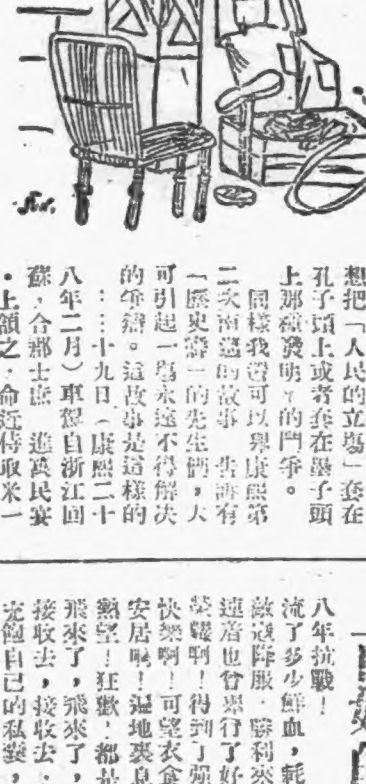 想把「人民的立場」套在
孔子頭上或者套在墨子頭
上那種發明」的鬥爭。
同樣我還可以舉康熙第
二次南巡的故事 告訴有
「歷史癖」的先生們,大
可引起一場永遠不得解決
的爭辯。這故事是這樣的
:…十九日(康熙二十
八年二月)車駕自浙江回
蘇,合郡士庶 進萬民宴
・上頷之,命近侍取米一
八年抗戰!
流了多少鮮血,耗
敵寇降服,勝利來
連着也曾舉行了好
榮耀啊!得到了強
快樂啊!可望衣食
安居喲!遍地
熱望!狂歡!都是
飛來了,飛來了,
接收去,接收去,
充飽自己的私囊,